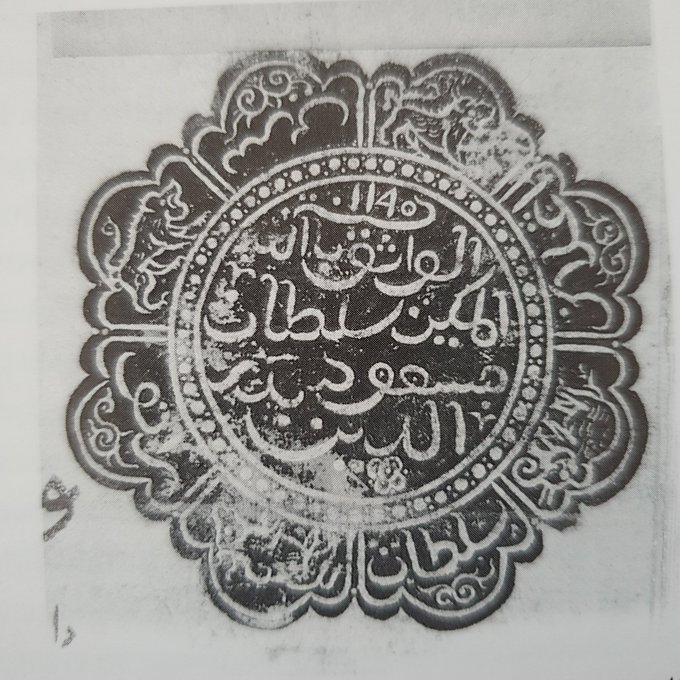 ١١٤٥
الواثق بالله
المكين سلطان
مسعود بدر
الدين
سلطان
و
دا